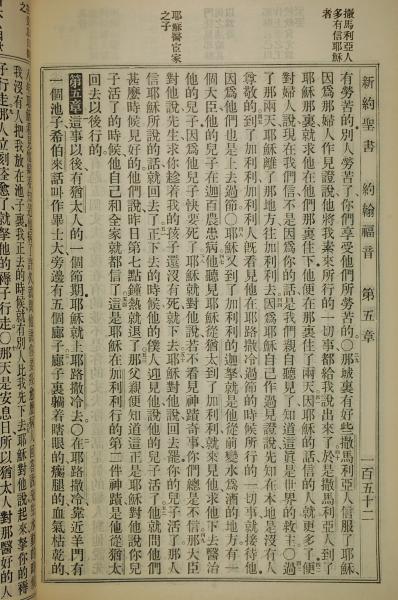 新約聖書 約翰福音 第五章 一百五十二
撒馬利亞人
多有信耶穌
者
有勞苦的別人勞苦了你們享受他們所勞苦的○那城裏有好些撒馬利亞人信服了耶穌
因爲那婦人作見證說他將我素來所行的一切事都給我說出來了於是撒馬利亞人到了
耶穌那裏就求他在他們那裏住下他便在那裏住了兩天因耶穌的話信的人就更多了便
對婦人說現在我們信不是因爲你的話是我們親自聽見了知道這眞是世界的救主○過
了那兩天耶穌離了那地方往加利利去因爲耶穌自己作過見證說先知在本地是沒有人
尊敬的到了加利利加利利人旣看見他在耶路撒冷過節的時候所行的一切事就接待他
因爲他們也是上去過節○耶穌又到了加利利的迦拏就是他從前變水爲酒的地方有一
耶穌醫宦家
之子
個大臣他的兒子在迦百農患病他聽見耶穌從猶太到了加利利就來見他求他下去醫治
他的兒子因爲他兒子快要死了耶穌就對他說若不看見神蹟奇事你們總是不信那大臣
對他說先生求你趁着我的孩子還沒有死就下去耶穌對他說回去罷你的兒子活了那人
信耶穌所說的話就回去了正下去的時候他的僕人迎見他說他的兒子活了他就問他們
甚麼時候見好的他們說昨日第七點鐘熱就退了那父親便知道這正是耶穌對他說你兒
子活了的時候他自己和全家就都信了這是耶穌在加利利行的第二件神蹟是他從猶太
回去以後行的
第五章 這事以後有猶太人的一個節期耶穌就上耶路撒冷去○在耶路撒冷靠近羊門有
一個池子希伯來話叫作畢士大旁邊有五個廊子廊子裏躺着瞎眼的瘸腿的血氣枯乾的
我沒有人把我放在池子裏我正去的時候就有別人比我先下去耶穌對他說起來拏你的褥
子行走那人立刻痊愈了就拏他的褥子行走○那天是安息日所以猶太人對那醫好的人